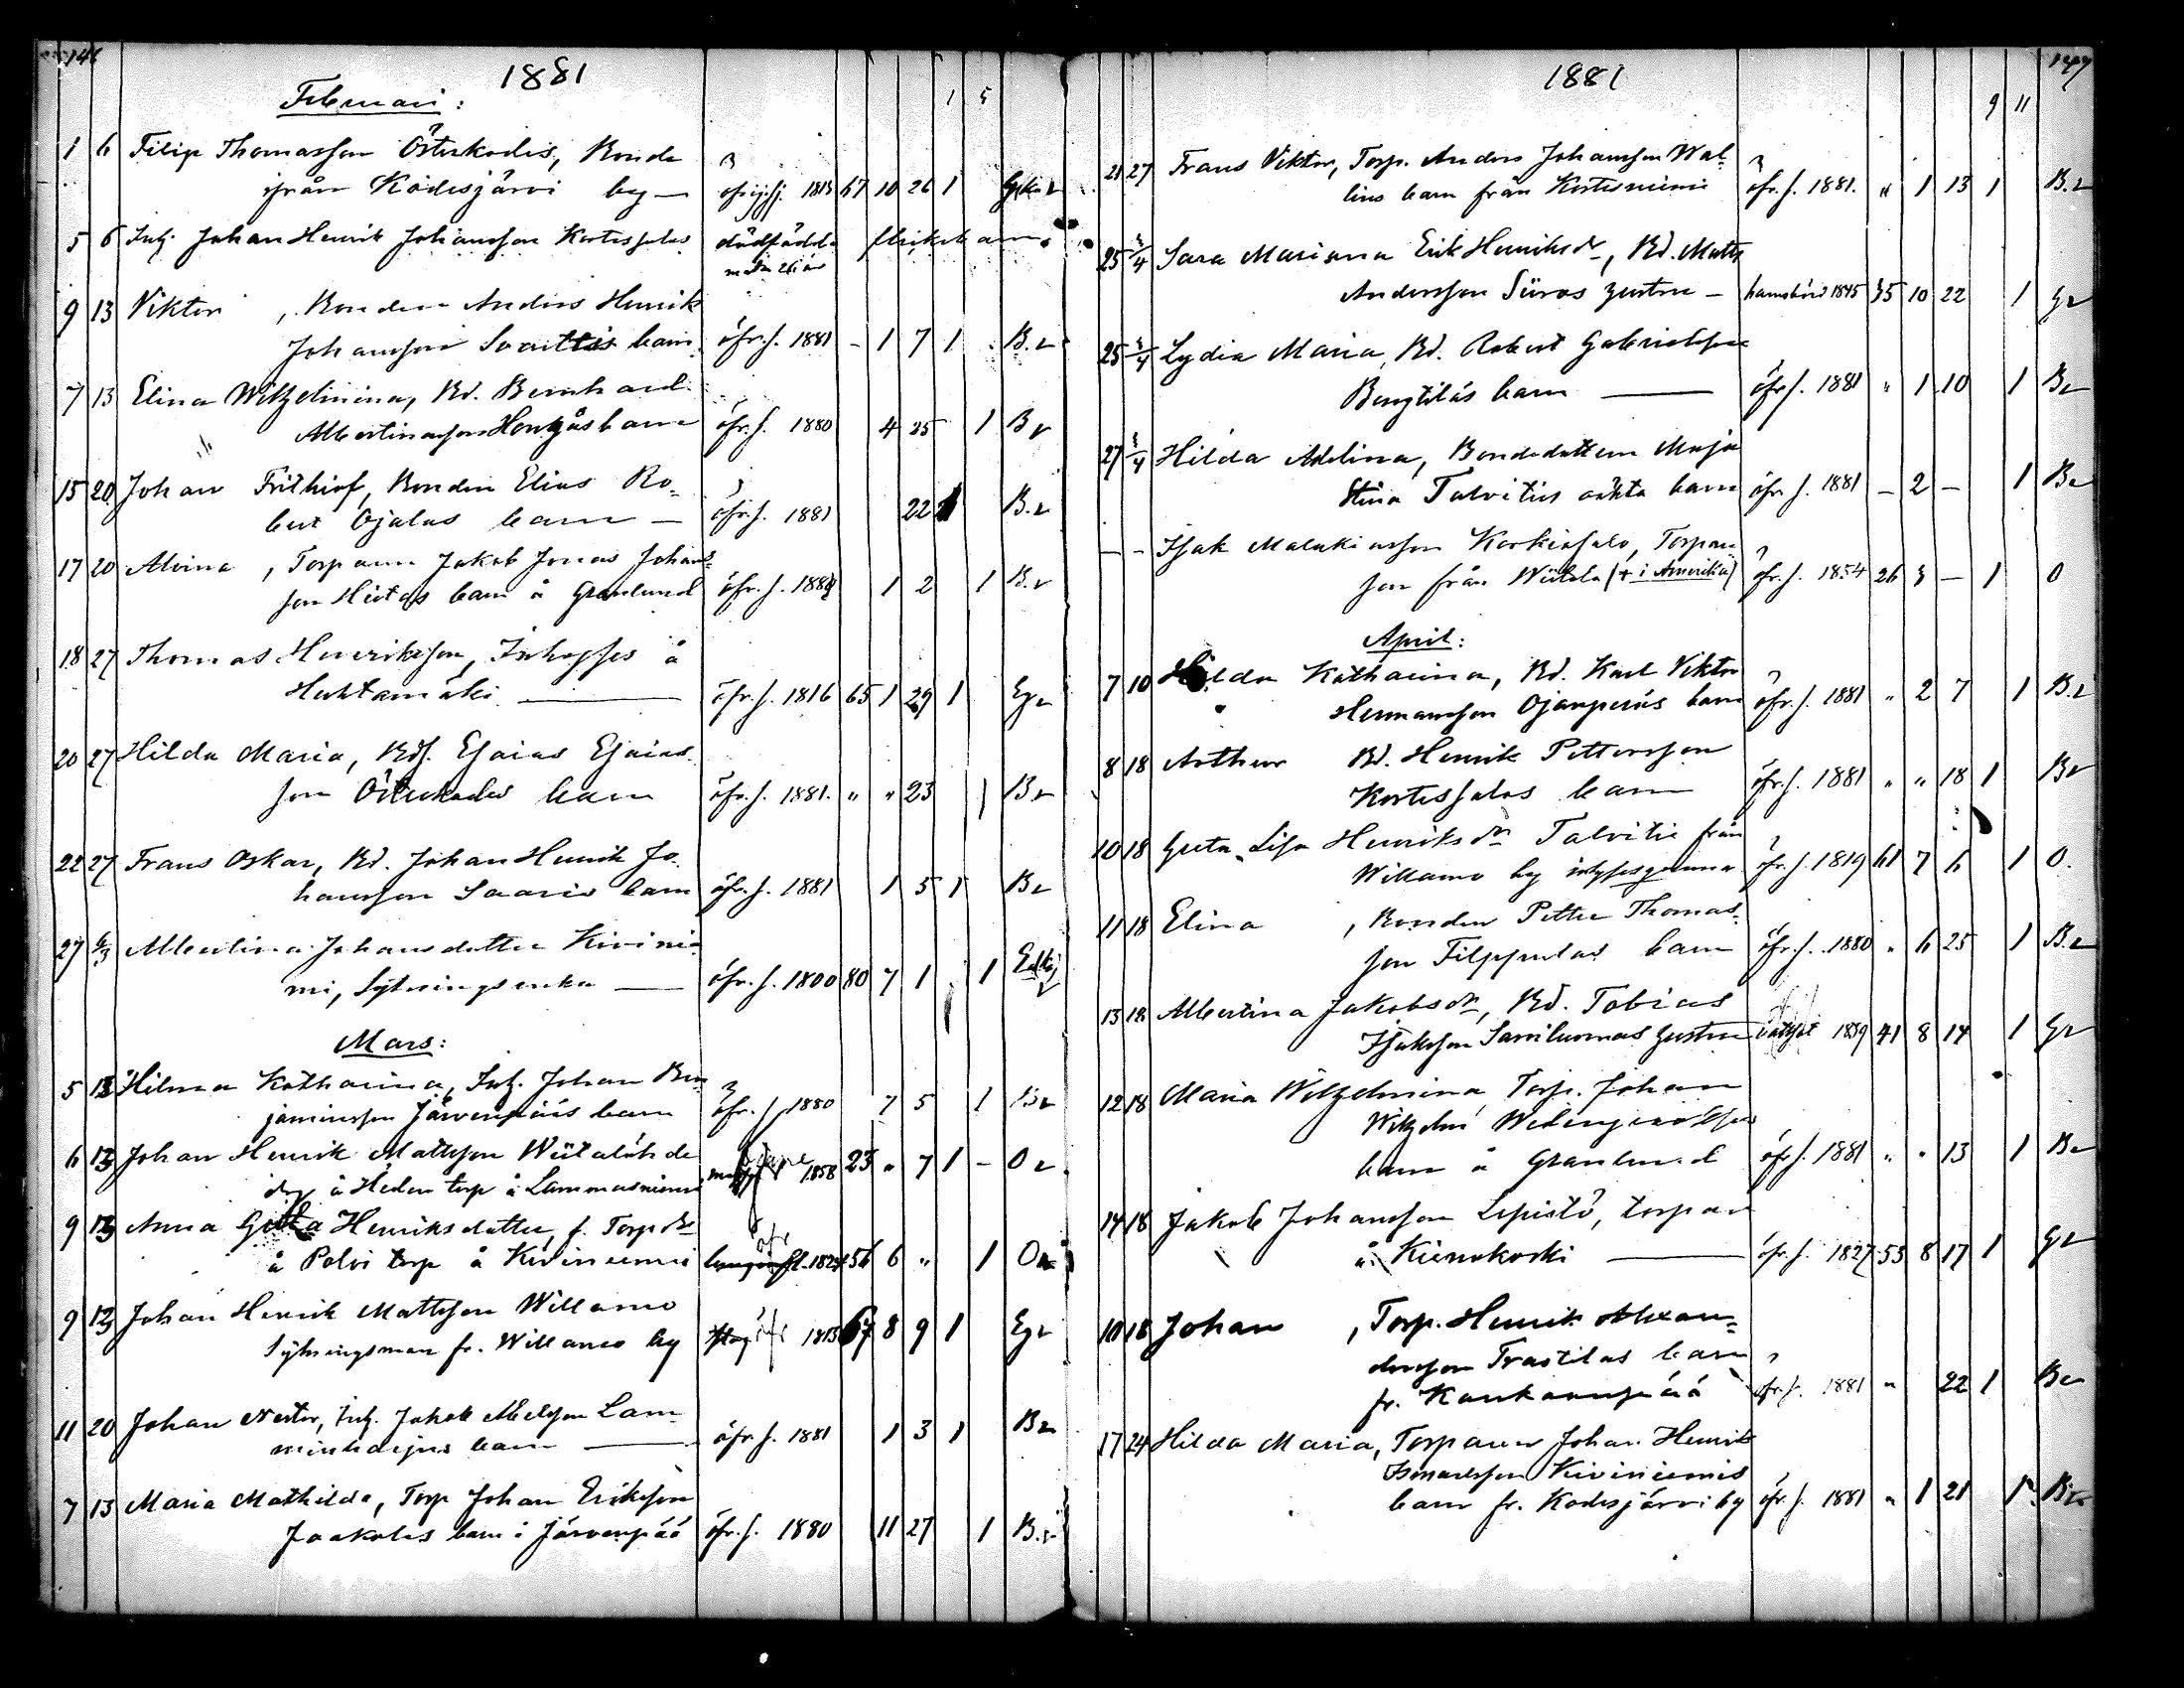 146
1881
Februari:
1 5
1 6 Filip Thomasson Österkodis, Bonde
ifrån Kodesjärvi by — 1813 67 10 26 1
5 6 Inh. Johan Henrik Johansson Kortessalos dödfödda flickebarn
modn 26 år
9 13 Viktor , Bonden Anders Henrik
Johansson barn öfr.f. 1881 - 1 7 1 B.
7 13 Elina Wilhelmina, Bd. Bernhard
Albertinasson barn öfr.f. 1880 4 25 1 Br
15 20 Johan Frithiof, Bonden Elias Ro-
bert Ojalas barn — öfr.f. 1881 22 1 B.
17 20 Alvina , Torparen Jakob Jonas Johans-
son barn å Granlund öfr.f. 1880 1 2 1 B.
18 27 Thomas Henriksson, Inhyses å
Huhtamäki — öfr.f. 1816 65 1 29 1
20 27 Hilda Maria, Bdf. Esaias Esaias-
son Österkodis barn öfr.f. 1881. " " 23 1 B
22 27 Frans Oskar, Bd. Johan Henrik Jo-
hansson Saaris barn öfr.f. 1881 1 5 1 B
27 6/3 Albertina Johansdotter Kivinie-
mi, Sytningsenka — öfr.f. 1800 80 7 1 1
Mars:
5 13 Hilma Katharina, Inh. Johan Ben-
jaminsson Järvenpääs barn öfr.f. 1880 7 5 1 B
6 13 Johan Henrik Mattsson
å Heden torp å Lammasniemi 1858 23 " 7 1 - O
9 13 Anna Greta Henriksdotter, f. Torp
å Polvi torp å Kiviniemi 1824 56 6 " 1 O
9 13 Johan Henrik Mattsson Willamo
Sytningsman fr. Willamo by 1813 67 8 9 1
11 20 Johan Nestor, Inh. Jakob Abelsson Lam-
minharjus barn — öfr.f. 1881 1 3 1 B
7 13 Maria Mathilda, Torp Johan Eriksson
Jaakolas barn i Järvenpää öfr.f. 1880 11 27 1 B.
147
1881
9 11
21 27 Frans Viktor, Torp. Anders Johansson Wal-
lins barn från Kortesniemi öfr.f. 1881. " 1 13 1 B.
25 3/4 Sara Mariana Erik Henriksdr, Bd. Matts
Andersson Siiros hustru — barnsbörd 1845 35 10 22 1 G
25 3/4 Lydia Maria, Bd. Robert Gabrielsson
Bengtiläs barn — öfr.f. 1881 " 1 10 1 B
27 3/4 Hilda Adelina, Bondedottern Maja
Stina Talvities oäkta barn öfr.f. 1881 - 2 - 1 B
- - Isak Malakiasson Korkiasalo, Torpare-
son från Wiitala (+ i Amerika) öfr.f. 1854 26 3 - 1 O
April:
7 10 Hilda Katharina, Bd. Karl Viktor
Hermansson Ojanperäs barn öfr.f. 1881 " 2 7 1 B.
8 18 Arthur Bd. Henrik Pettersson
Kortessalos barn öfr.f. 1881 " " 18 1 B
10 18 Greta Lisa Henriksdr Talvitie från
Willamo by öfr.f. 1819 61 7 6 1 O.
11 18 Elina , Bonden Petter Thomas-
son Filppulas barn öfr.f. 1880 " 6 25 1 B.
13 18 Albertina Jakobsdr, Bd. Tobias
Isaksson Samiluomas hustru 1839 41 8 14 1 G
12 18 Maria Wilhelmina Torp. Johan
Wilhelm
barn å Granlund öfr.f. 1881 " " 13 1 B
14 18 Jakob Johansson Lepistö, torpare
å — öfr.f. 1827 53 8 17 1 G
10 18 Johan , Torp. Henrik Alexan-
dersson Trastilas barn
fr. Kankaanpää öfr.f. 1881 " 22 1 B
17 24 Hilda Maria, Torparen Johan Henrik
Ismaelsson Kiviniemis
barn fr. Kodesjärvi by öfr.f. 1881 " 1 21 1 B